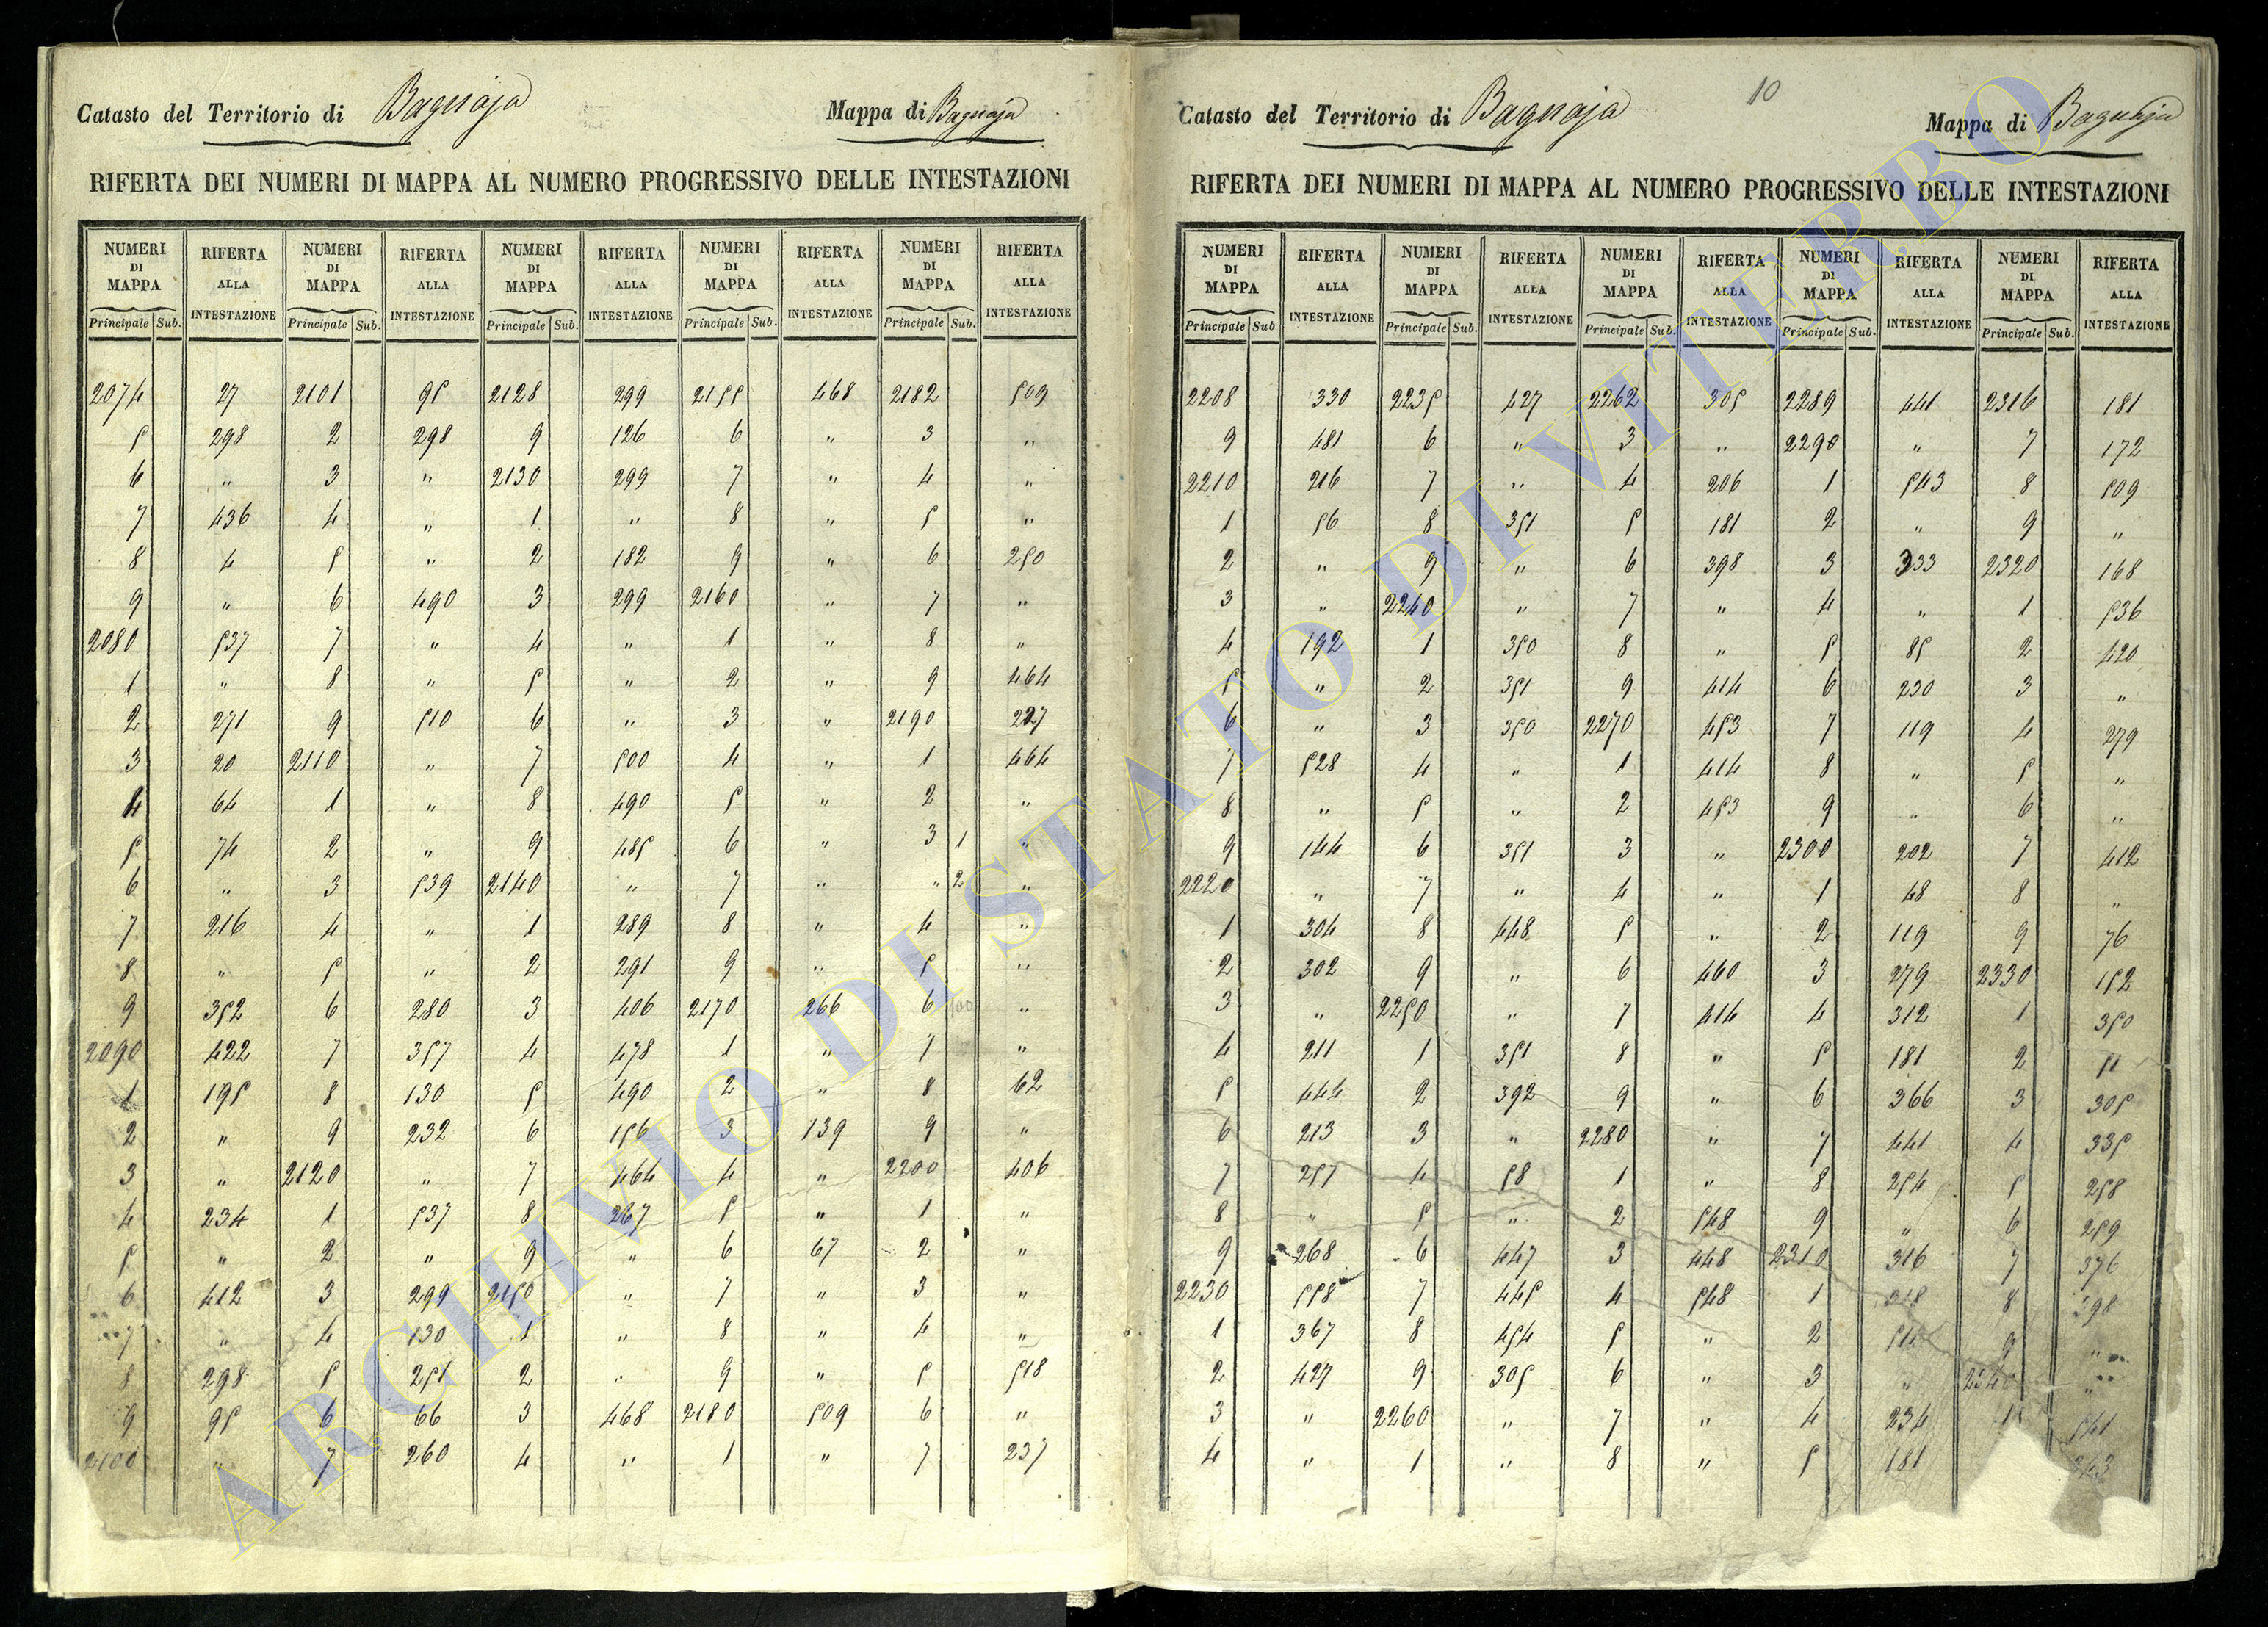 Catasto del Territorio di Bagnaja Mappa di Bagnaja
RIFERTA DEI NUMERI DI MAPPA AL NUMERO PROGRESSIVO DELLE INTESTAZIONI
NUMERI DI MAPPA RIFERTA ALLA INTESTAZIONE NUMERI DI MAPPA RIFERTA ALLA INTESTAZIONE NUMERI DI MAPPA RIFERTA ALLA INTESTAZIONE NUMERI DI MAPPA RIFERTA ALLA INTESTAZIONE NUMERI DI MAPPA RIFERTA ALLA INTESTAZIONE
Principale Sub. Principale Sub. Principale Sub. Principale Sub. Principale Sub.
2074 27 2101 95 2128 299 2155 468 2182 509
5 298 2 298 9 126 6 " 3 "
6 " 3 " 2130 299 7 " 4 "
7 436 4 " 1 " 8 " 5 "
8 4 5 " 2 182 9 " 6 250
9 " 6 490 3 299 2160 " 7 "
2080 537 7 " 4 " 1 " 8 "
1 " 8 " 5 " 2 " 9 464
2 271 9 510 6 " 3 " 2190 227
3 20 2110 " 7 500 4 " 1 464
4 64 1 " 8 490 5 " 2 "
5 74 2 " 9 485 6 " 3 1 "
6 " 3 539 2140 " 7 " " 2 "
7 216 4 " 1 289 8 " 4 "
8 " 5 " 2 291 9 " 5 "
9 352 6 280 3 406 2170 266 6 "
2090 422 7 357 4 478 1 " 7 "
1 195 8 130 5 490 2 " 8 62
2 " 9 232 6 156 3 139 9 "
3 " 2120 " 7 464 4 " 2200 406
4 234 1 537 8 267 5 " 1 "
5 " 2 " 9 " 6 67 2 "
6 412 3 299 2150 " 7 " 3 "
7 " 4 130 1 " 8 " 4 "
8 298 5 251 2 " 9 " 5 518
9 95 6 66 3 468 2180 509 6 "
2100 " 7 260 4 " 1 " 7 237
10
Catasto del Territorio di Bagnaja Mappa di Bagnaja
RIFERTA DEI NUMERI DI MAPPA AL NUMERO PROGRESSIVO DELLE INTESTAZIONI
NUMERI DI MAPPA RIFERTA ALLA INTESTAZIONE NUMERI DI MAPPA RIFERTA ALLA INTESTAZIONE NUMERI DI MAPPA RIFERTA ALLA INTESTAZIONE NUMERI DI MAPPA RIFERTA ALLA INTESTAZIONE NUMERI DI MAPPA RIFERTA ALLA INTESTAZIONE
Principale Sub Principale Sub. Principale Sub. Principale Sub. Principale Sub.
2208 330 2235 427 2262 305 2289 441 2316 181
9 481 6 " 3 " 2290 " 7 172
2210 216 7 " 4 206 1 543 8 509
1 56 8 351 5 181 2 " 9 "
2 " 9 " 6 398 3 333 2320 168
3 " 2240 " 7 " 4 " 1 536
4 192 1 350 8 " 5 85 2 420
5 " 2 351 9 414 6 230 3 "
6 " 3 350 2270 453 7 119 4 279
7 528 4 " 1 414 8 " 5 "
8 " 5 " 2 453 9 " 6 "
9 144 6 351 3 " 2300 202 7 412
2220 " 7 " 4 " 1 48 8 "
1 304 8 448 5 " 2 119 9 76
2 302 9 " 6 460 3 279 2330 152
3 " 2250 " 7 414 4 312 1 350
4 211 1 351 8 " 5 181 2 51
5 444 2 392 9 " 6 366 3 305
6 213 3 " 2280 " 7 441 4 335
7 257 4 58 1 " 8 254 5 258
8 " 5 " 2 548 9 " 6 259
9 268 6 447 3 448 2310 316 7 376
2230 558 7 445 4 548 1 8 398
1 367 8 454 5 " 2 9 "
2 427 9 305 6 " 3 " 2340 "
3 " 2260 " 7 " 4 234 1 541
4 " 1 " 8 " 5 181
ARCHIVIO DI STATO DI VITERBO